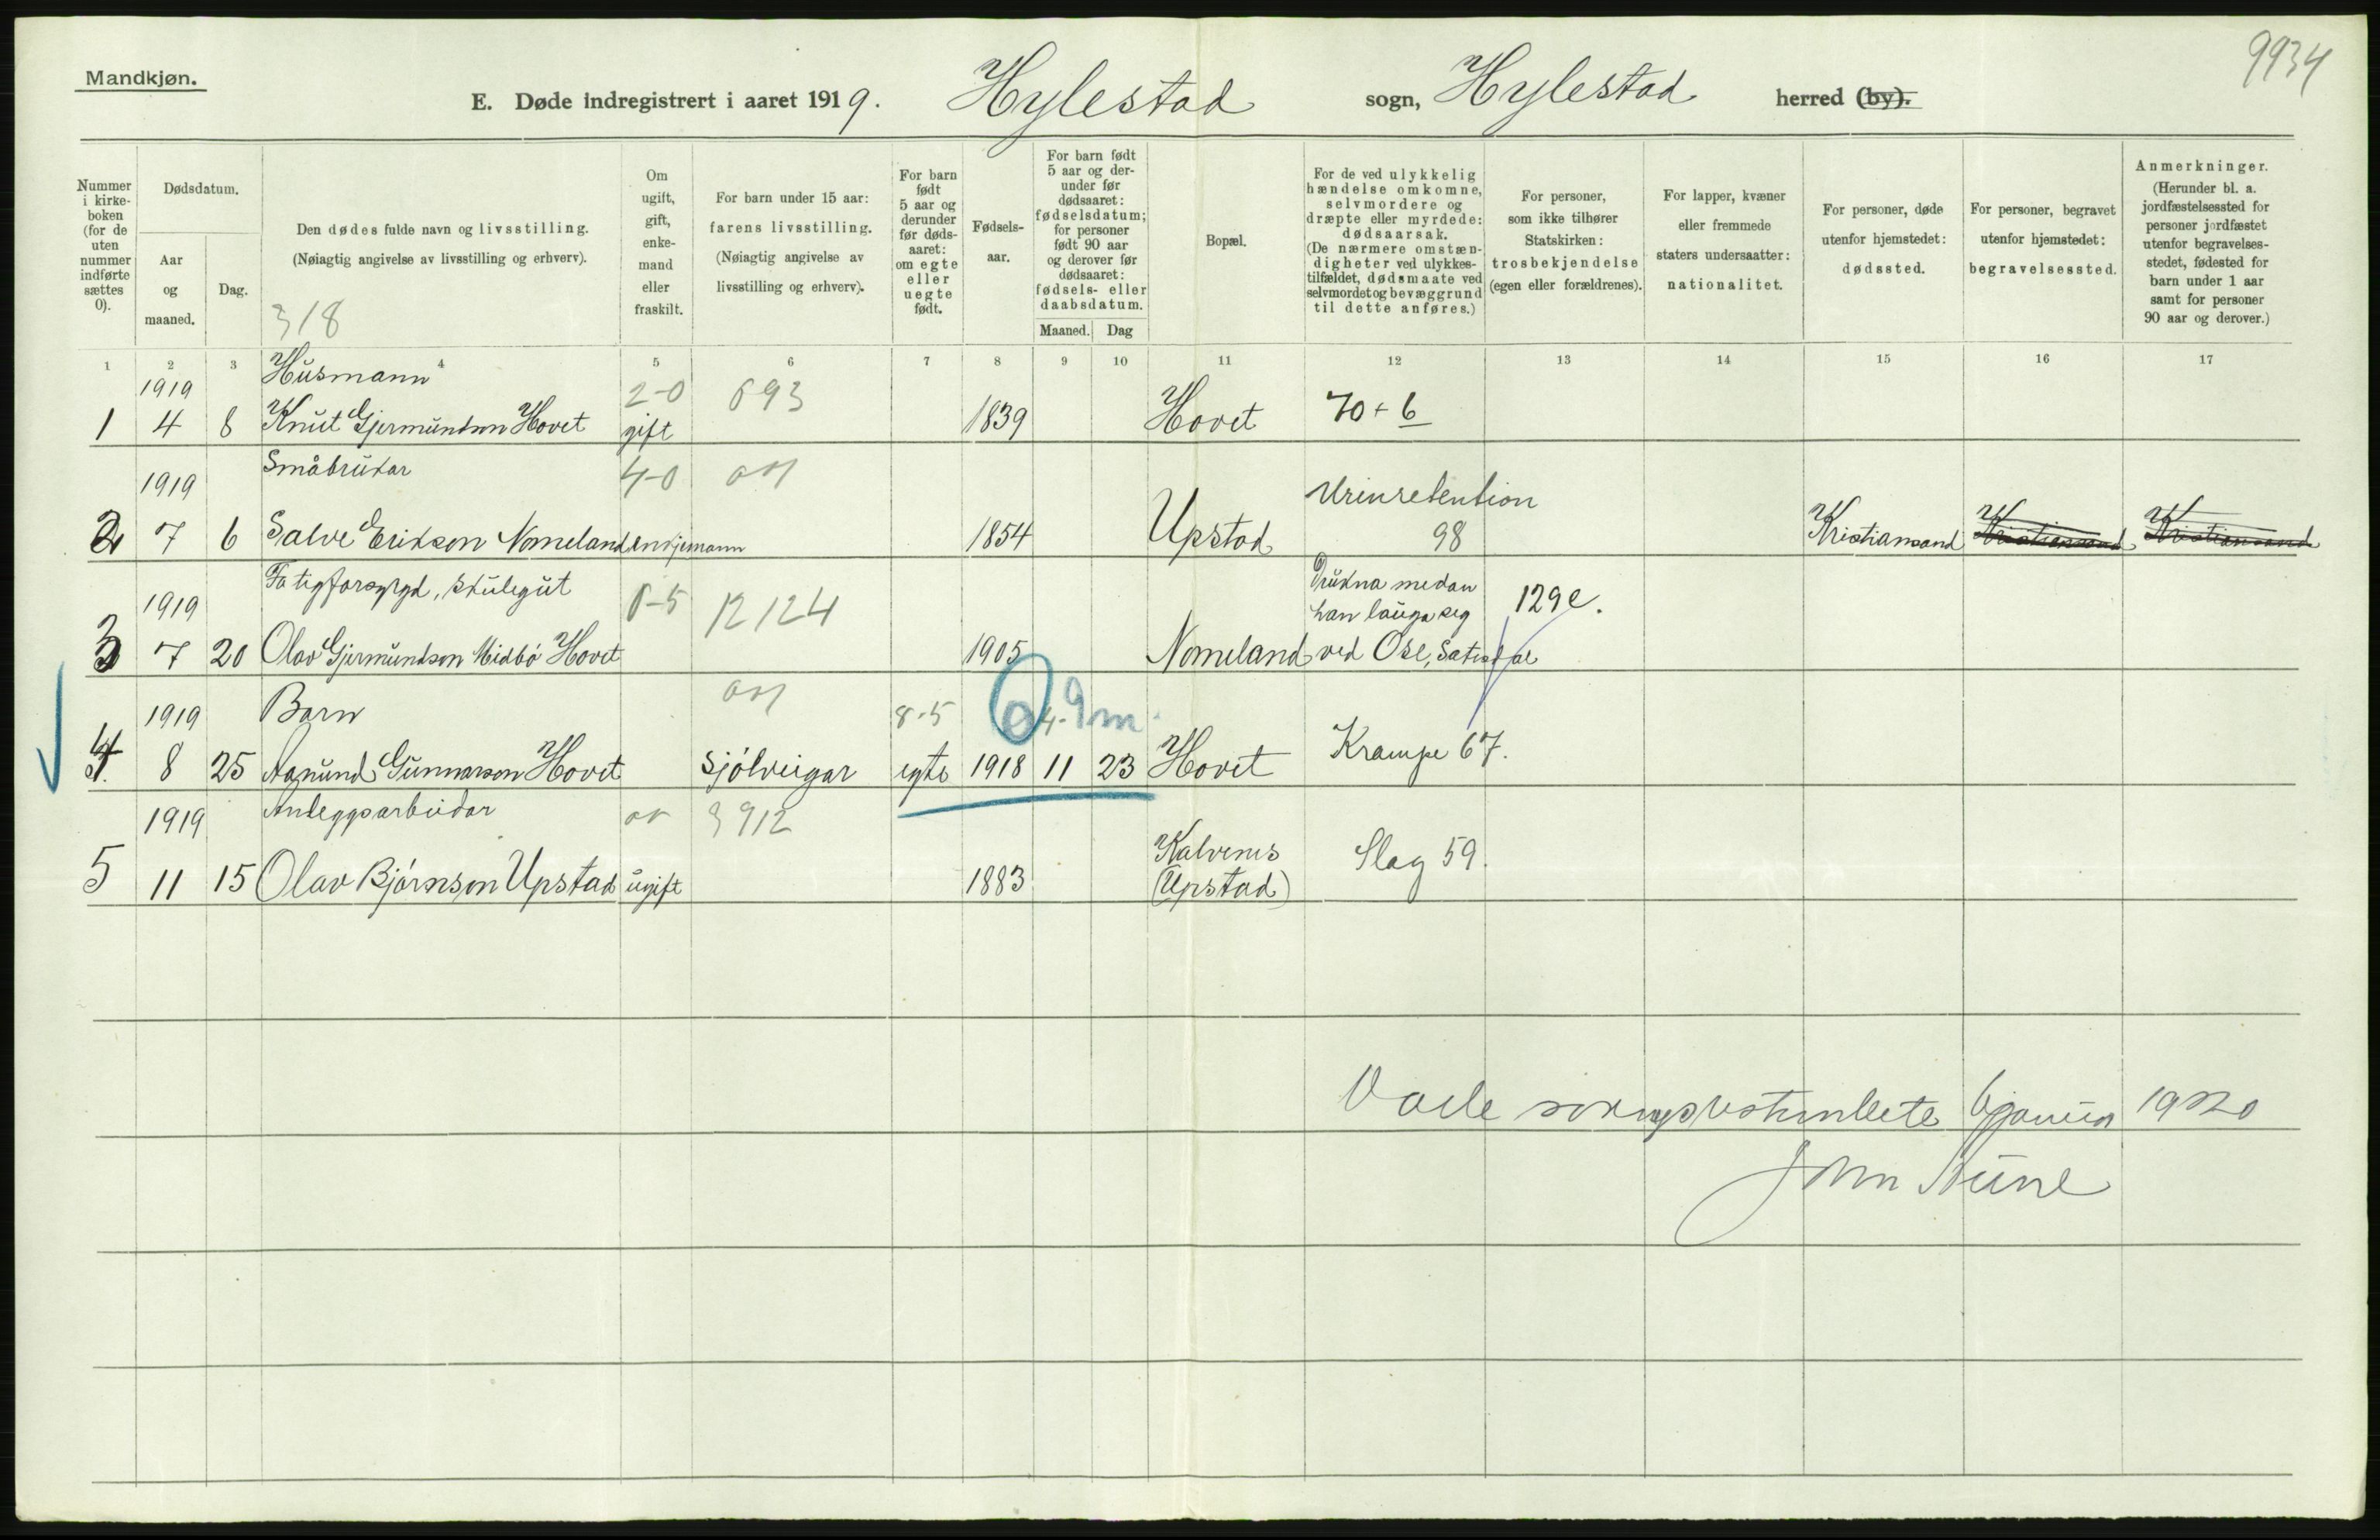 Mandkjøn.
9934
E. Døde indregistrert i aaret 1919. Hylestad sogn, Hylestad herred (by).
Nummer i kirkeboken (for de uten nummer indførte sættes 0).
Dødsdatum.
Aar og maaned.
Dag.
Den dødes fulde navn og livsstilling.
(Nøiagtig angivelse av livsstilling og erhverv).
318
Om ugift, gift, enkemand eller fraskilt.
For barn under 15 aar: farens livsstilling.
(Nøiagtig angivelse av livsstilling og erhverv).
For barn født 5 aar og derunder før dødsaaret: om egte eller uegte født.
Fødselsaar.
For barn født 5 aar og derunder før dødsaaret: fødselsdatum; for personer født 90 aar og derover før dødsaaret: fødsels- eller daabsdatum.
Maaned. Dag
Bopæl.
For de ved ulykkelig hændelse omkomne, selvmordere og dræpte eller myrdede: dødsaarsak.
(De nærmere omstændigheter ved ulykkestilfældet, dødsmaate ved selvmordet og bevæggrund til dette anføres.)
For personer, som ikke tilhører Statskirken: trosbekjendelse (egen eller forældrenes).
For lapper, kvæner eller fremmede staters undersaatter: nationalitet.
For personer, døde utenfor hjemstedet: dødssted.
For personer, begravet utenfor hjemstedet: begravelsessted.
Anmerkninger.
(Herunder bl. a. jordfæstelsessted for personer jordfæstet utenfor begravelsesstedet, fødested for barn under 1 aar samt for personer 90 aar og derover.)
1 2 3 4 5 6 7 8 9 10 11 12 13 14 15 16 17
1919 Husmann 2-0 693
1 4 8 Knut Gjermundson Hovet gift 1839 Hovet 70+6
1919 Småbrukar 4-0 Urinretention
2 7 6 Salve Erikson Nomeland enkjemann 1854 Upstad 98 Kristiansand Kristiansand Kristiansand
1919 Fatigforsyrgd, skulegut 8-5 12124 Drukna medan han lauga seg 129e.
3 7 20 Olav Gjermundson Midbø Hovet 1905 Nomeland ved Ose, Sætesdal
1919 Barn 8-5 0 4-9m.
4 8 25 Aanund Gunnarson Hovet Sjölveigar egte 1918 11 23 Hovet Krampe 67.
1919 Anleggsarbeidar 3912
5 11 15 Olav Bjørnson Upstad ugift 1883 Kalvenes (Upstad) Slag 59.
Valle 6 januar 1920
John